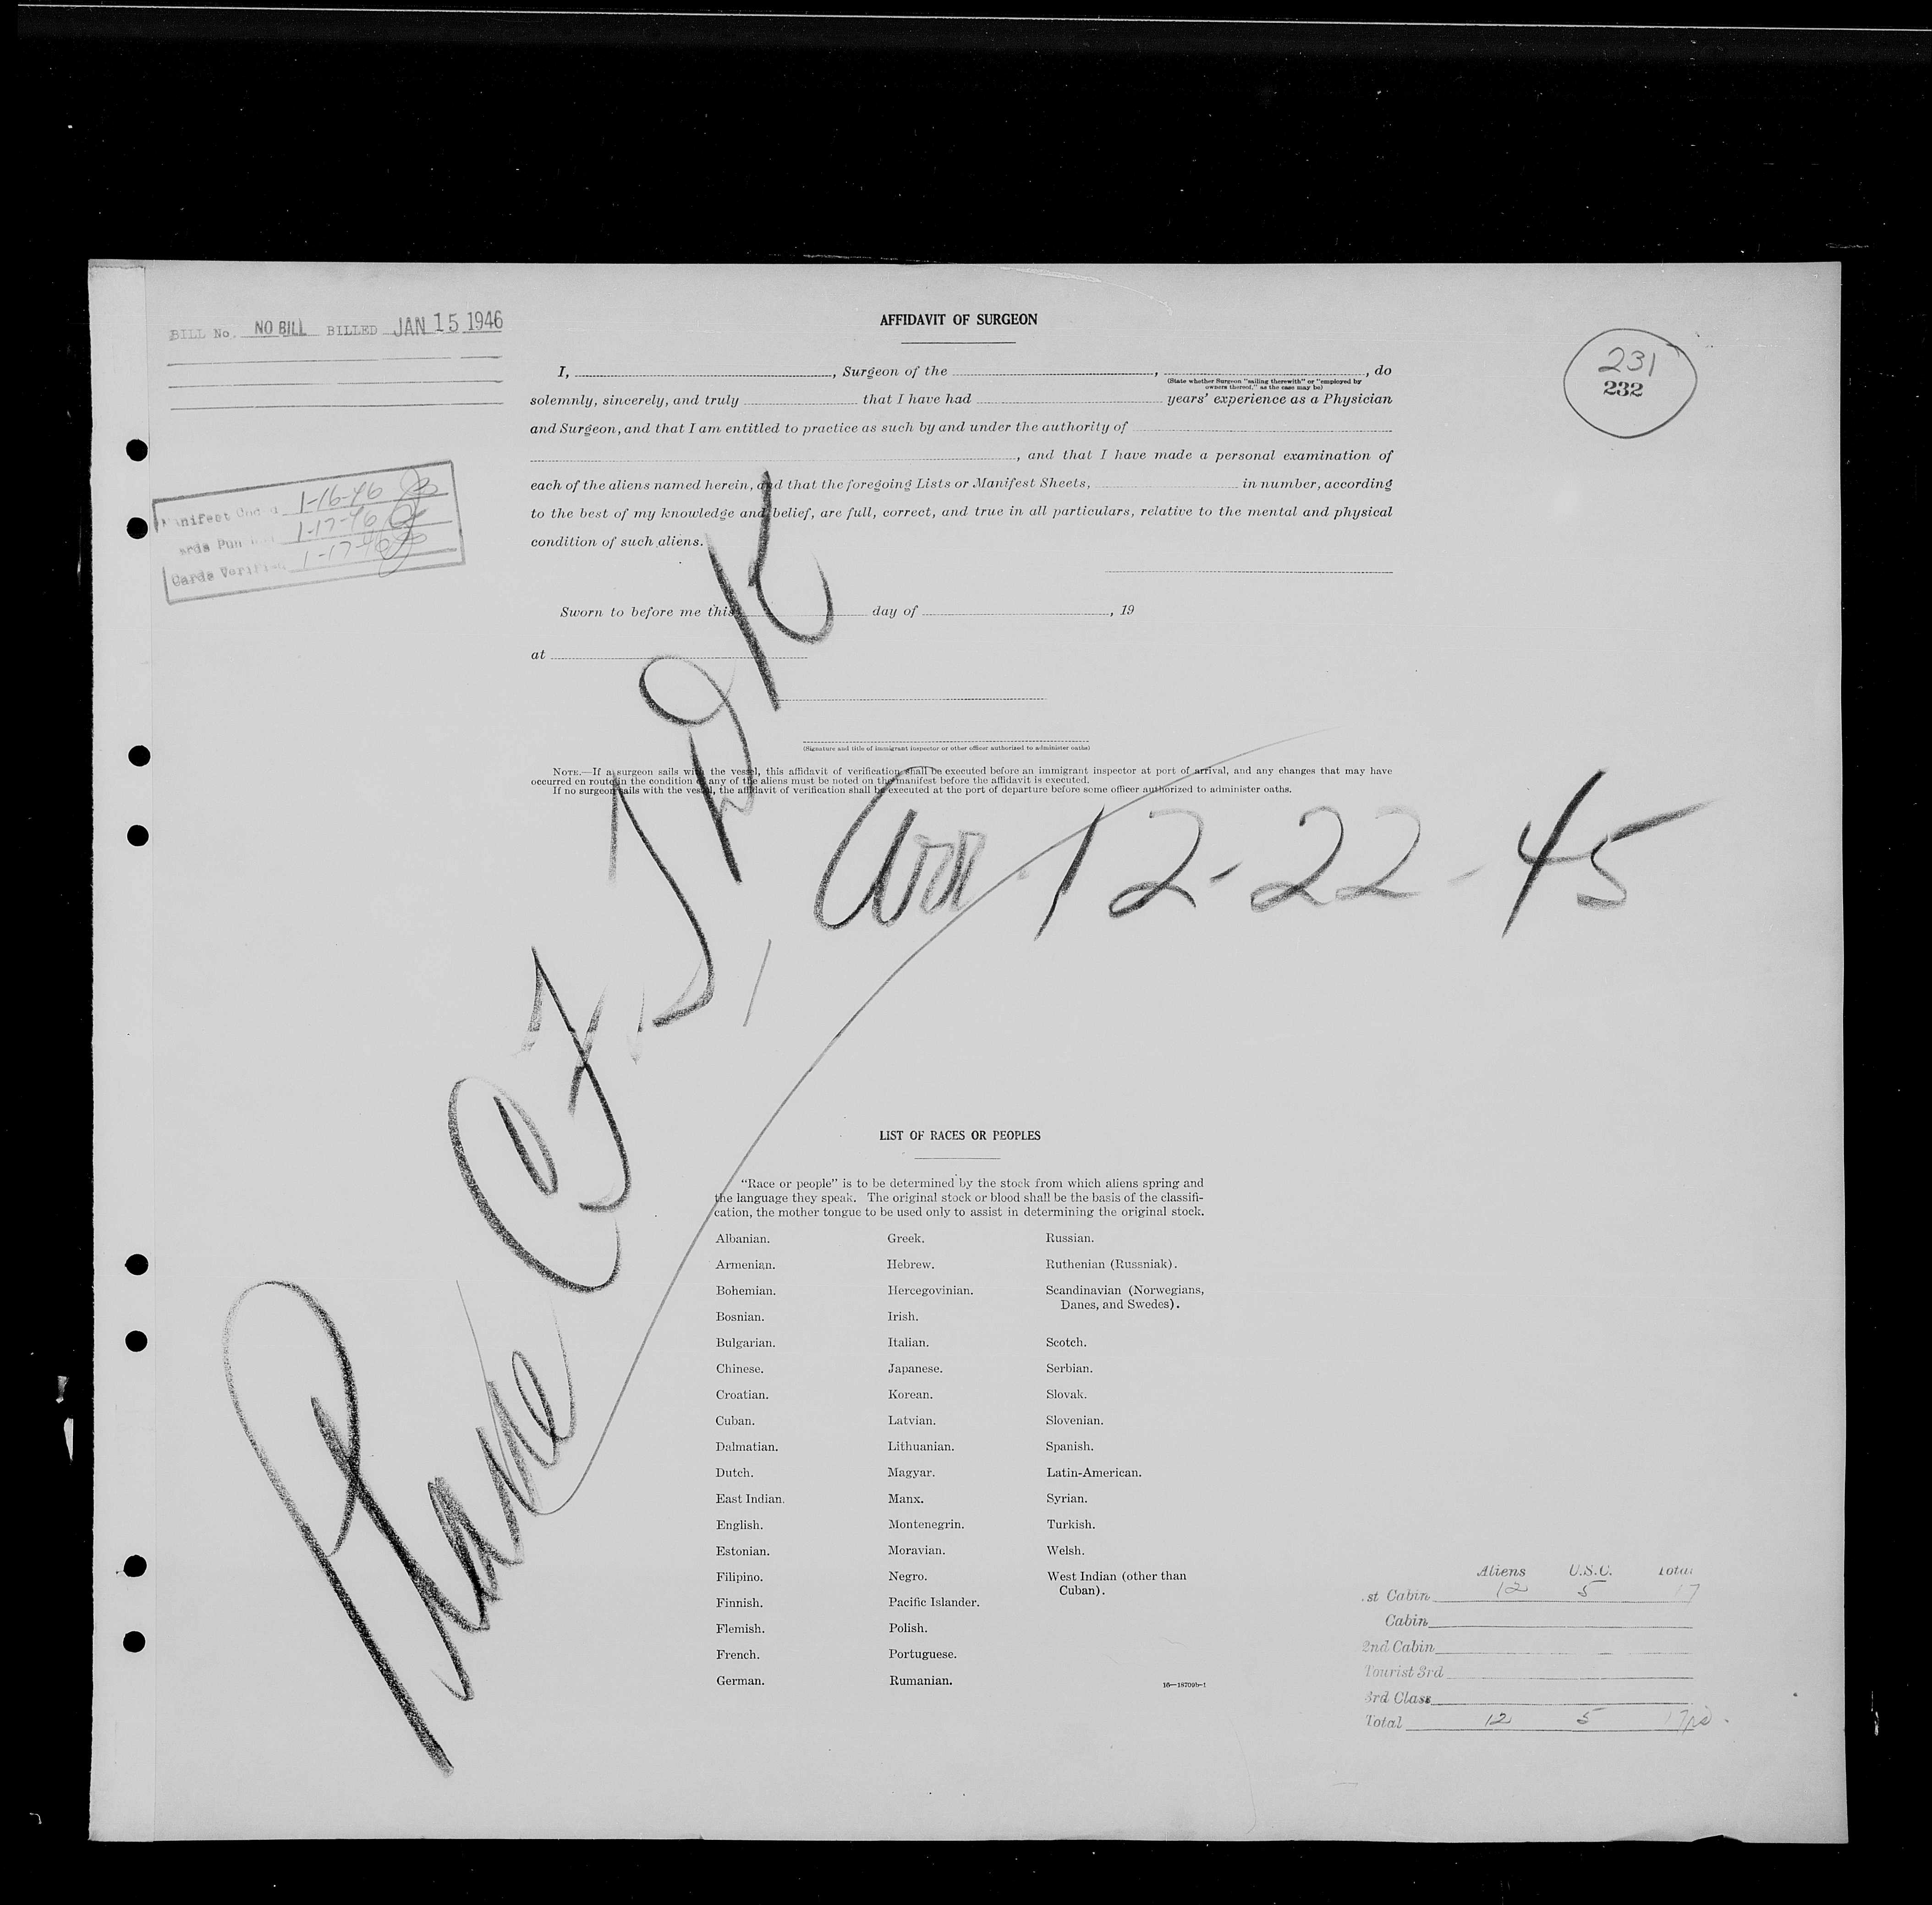 BILL No. NO BILL BILLED JAN 15 1946
AFFIDAVIT OF SURGEON
231
232
I, , Surgeon of the , , do
(State whether Surgeon "sailing therewith" or "employed by
owners thereof," as the case may be)
solemnly, sincerely, and truly that I have had years' experience as a Physician
and Surgeon, and that I am entitled to practice as such by and under the authority of
, and that I have made a personal examination of
each of the aliens named herein, and that the foregoing Lists or Manifest Sheets, in number, according
to the best of my knowledge and belief, are full, correct, and true in all particulars, relative to the mental and physical
condition of such aliens.
Manifest 1-16-46
Cards Pun 1-17-46
Cards Verified 1-17-46
Sworn to before me this day of , 19
at
(Signature and title of immigrant inspector or other officer authorized to administer oaths)
NOTE.—If a surgeon sails with the vessel, this affidavit of verification shall be executed before an immigrant inspector at port of arrival, and any changes that may have
occurred en route in the condition of any of the aliens must be noted on the manifest before the affidavit is executed.
If no surgeon sails with the vessel, the affidavit of verification shall be executed at the port of departure before some officer authorized to administer oaths.
Plane
Arr. 12-22-45
LIST OF RACES OR PEOPLES
"Race or people" is to be determined by the stock from which aliens spring and
the language they speak. The original stock or blood shall be the basis of the classifi-
cation, the mother tongue to be used only to assist in determining the original stock.
Albanian.
Armenian.
Bohemian.
Bosnian.
Bulgarian.
Chinese.
Croatian.
Cuban.
Dalmatian.
Dutch.
East Indian.
English.
Estonian.
Filipino.
Finnish.
Flemish.
French.
German.
Greek.
Hebrew.
Hercegovinian.
Irish.
Italian.
Japanese.
Korean.
Latvian.
Lithuanian.
Magyar.
Manx.
Montenegrin.
Moravian.
Negro.
Pacific Islander.
Polish.
Portuguese.
Rumanian.
Russian.
Ruthenian (Russniak).
Scandinavian (Norwegians,
Danes, and Swedes).
Scotch.
Serbian.
Slovak.
Slovenian.
Spanish.
Latin-American.
Syrian.
Turkish.
Welsh.
West Indian (other than
Cuban).
16—18709b-1
Aliens U.S.C. Total
1st Cabin 12 5 17
Cabin
2nd Cabin
Tourist 3rd
3rd Class
Total 12 5 17